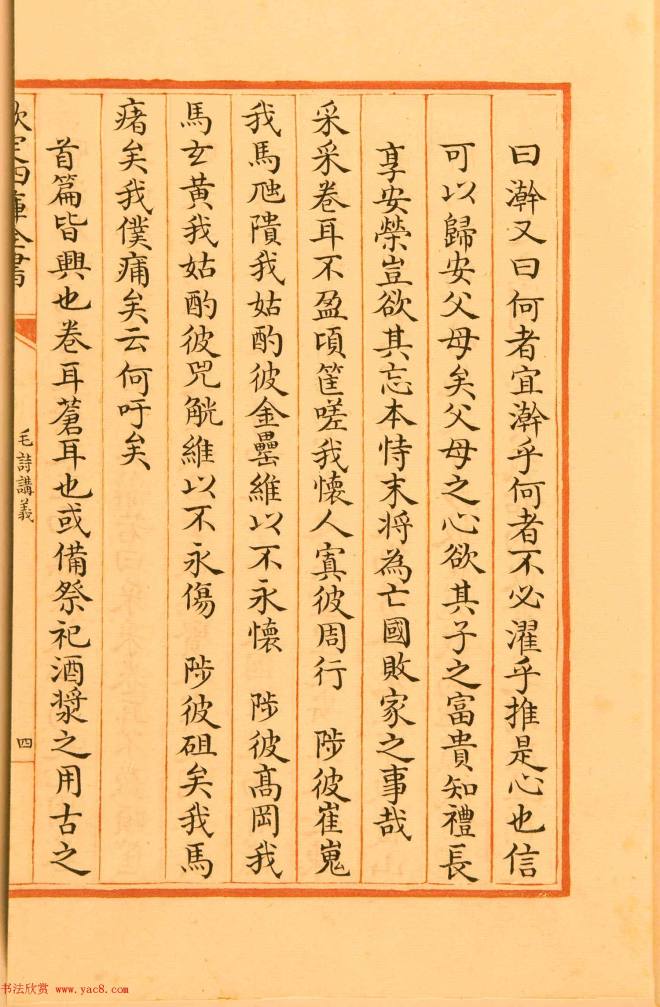 曰澣又曰何者宜澣乎何者不必濯乎推是心也信
可以歸安父母矣父母之心欲其子之富貴知禮長
享安榮豈欲其忘本恃末將為亡國敗家之事哉
采采卷耳不盈頃筐嗟我懷人寘彼周行　陟彼崔嵬
我馬虺隤我姑酌彼金罍維以不永懷　陟彼高岡我
馬玄黃我姑酌彼兕觥維以不永傷　陟彼砠矣我馬
瘏矣我僕痡矣云何吁矣
首篇皆興也卷耳蒼耳也或備祭祀酒漿之用古之
欽定四庫全書
毛詩講義
四
书法欣赏 www.yac8.com